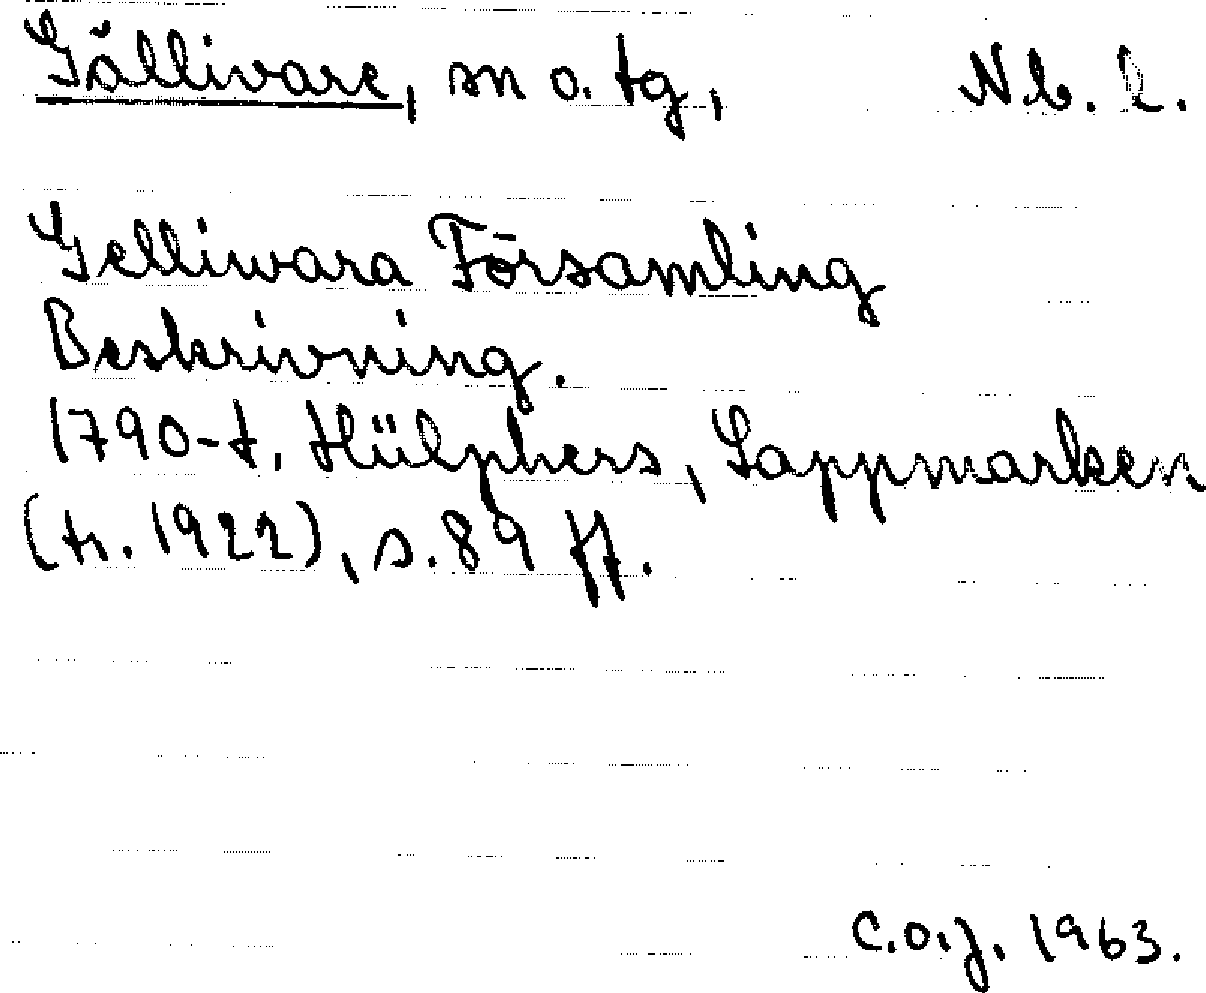 Gällivare, sn o. tg, Nb. L.
Gelliwara Församling
Beskrivning.
1790-t. Hülphers, Lappmarken
(tr. 1922), s. 89 ff.
C.O.J. 1963.